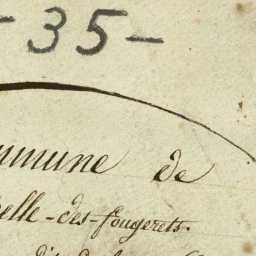 -35-
mmune de
elle-des-fougerets.